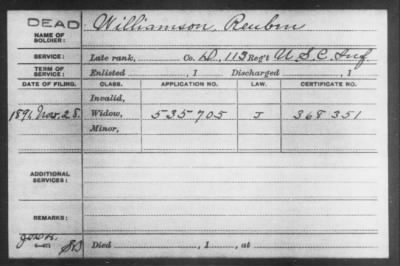 DEAD
NAME OF SOLDIER: Williamson, Reuben
SERVICE: Late rank, Co. D, 113 Reg't U. S. C. Inf.
TERM OF SERVICE: Enlisted , 1 Discharged , 1
DATE OF FILING. CLASS. APPLICATION NO. LAW. CERTIFICATE NO.
Invalid,
1891 Nov. 28. Widow, 535705 J 368351
Minor,
ADDITIONAL SERVICES:
REMARKS:
Died , 1 , at